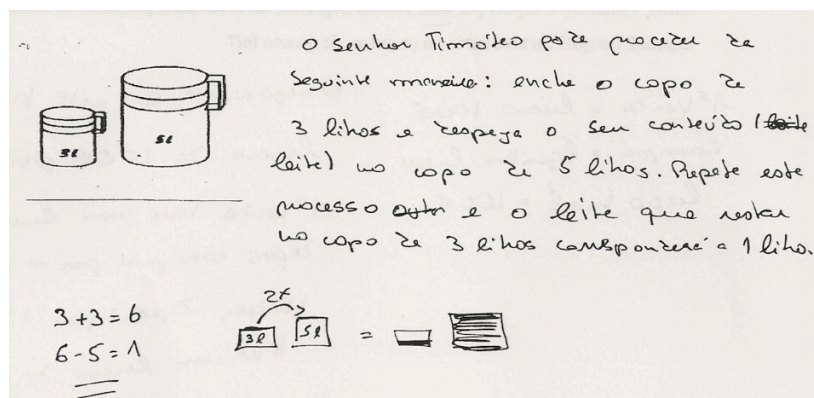 O senhor Timóteo pode proceder da
seguinte maneira: enche o copo de
3 litros e despeja o seu conteúdo (leite
leite) no copo de 5 litros. Repete este
processo e o leite que restar
no copo de 3 litros corresponderá a 1 litro.
3l
5l
3+3=6
6-5=1
2x
3l 5l =